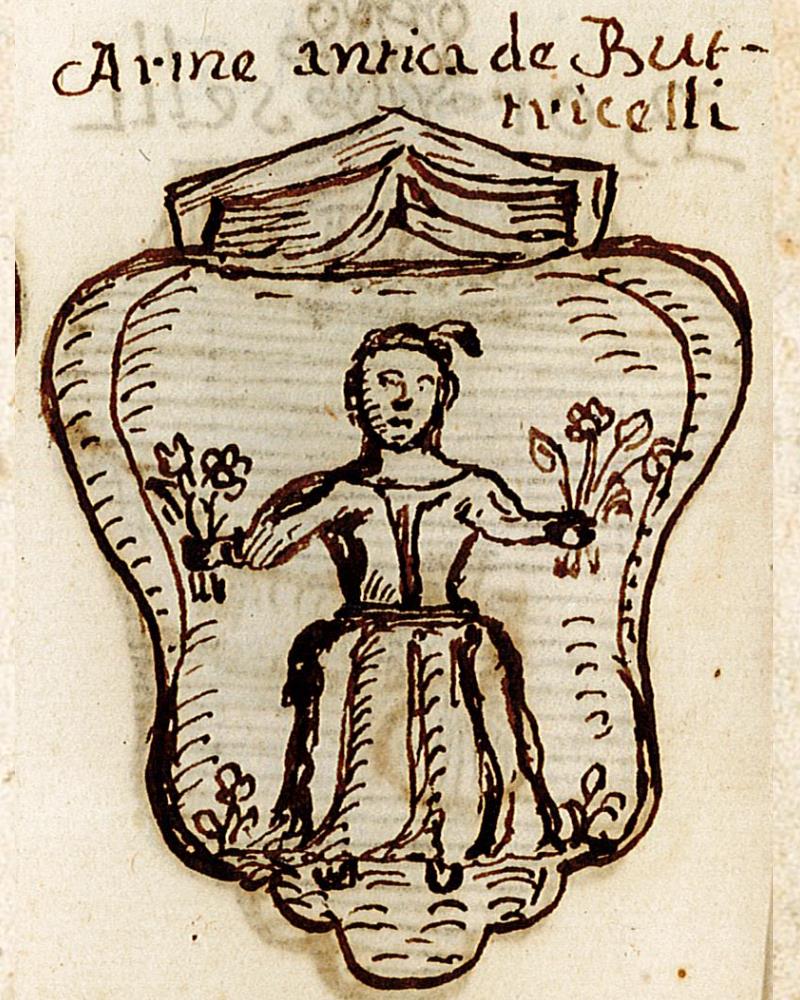 Arme antica de But-
tricelli